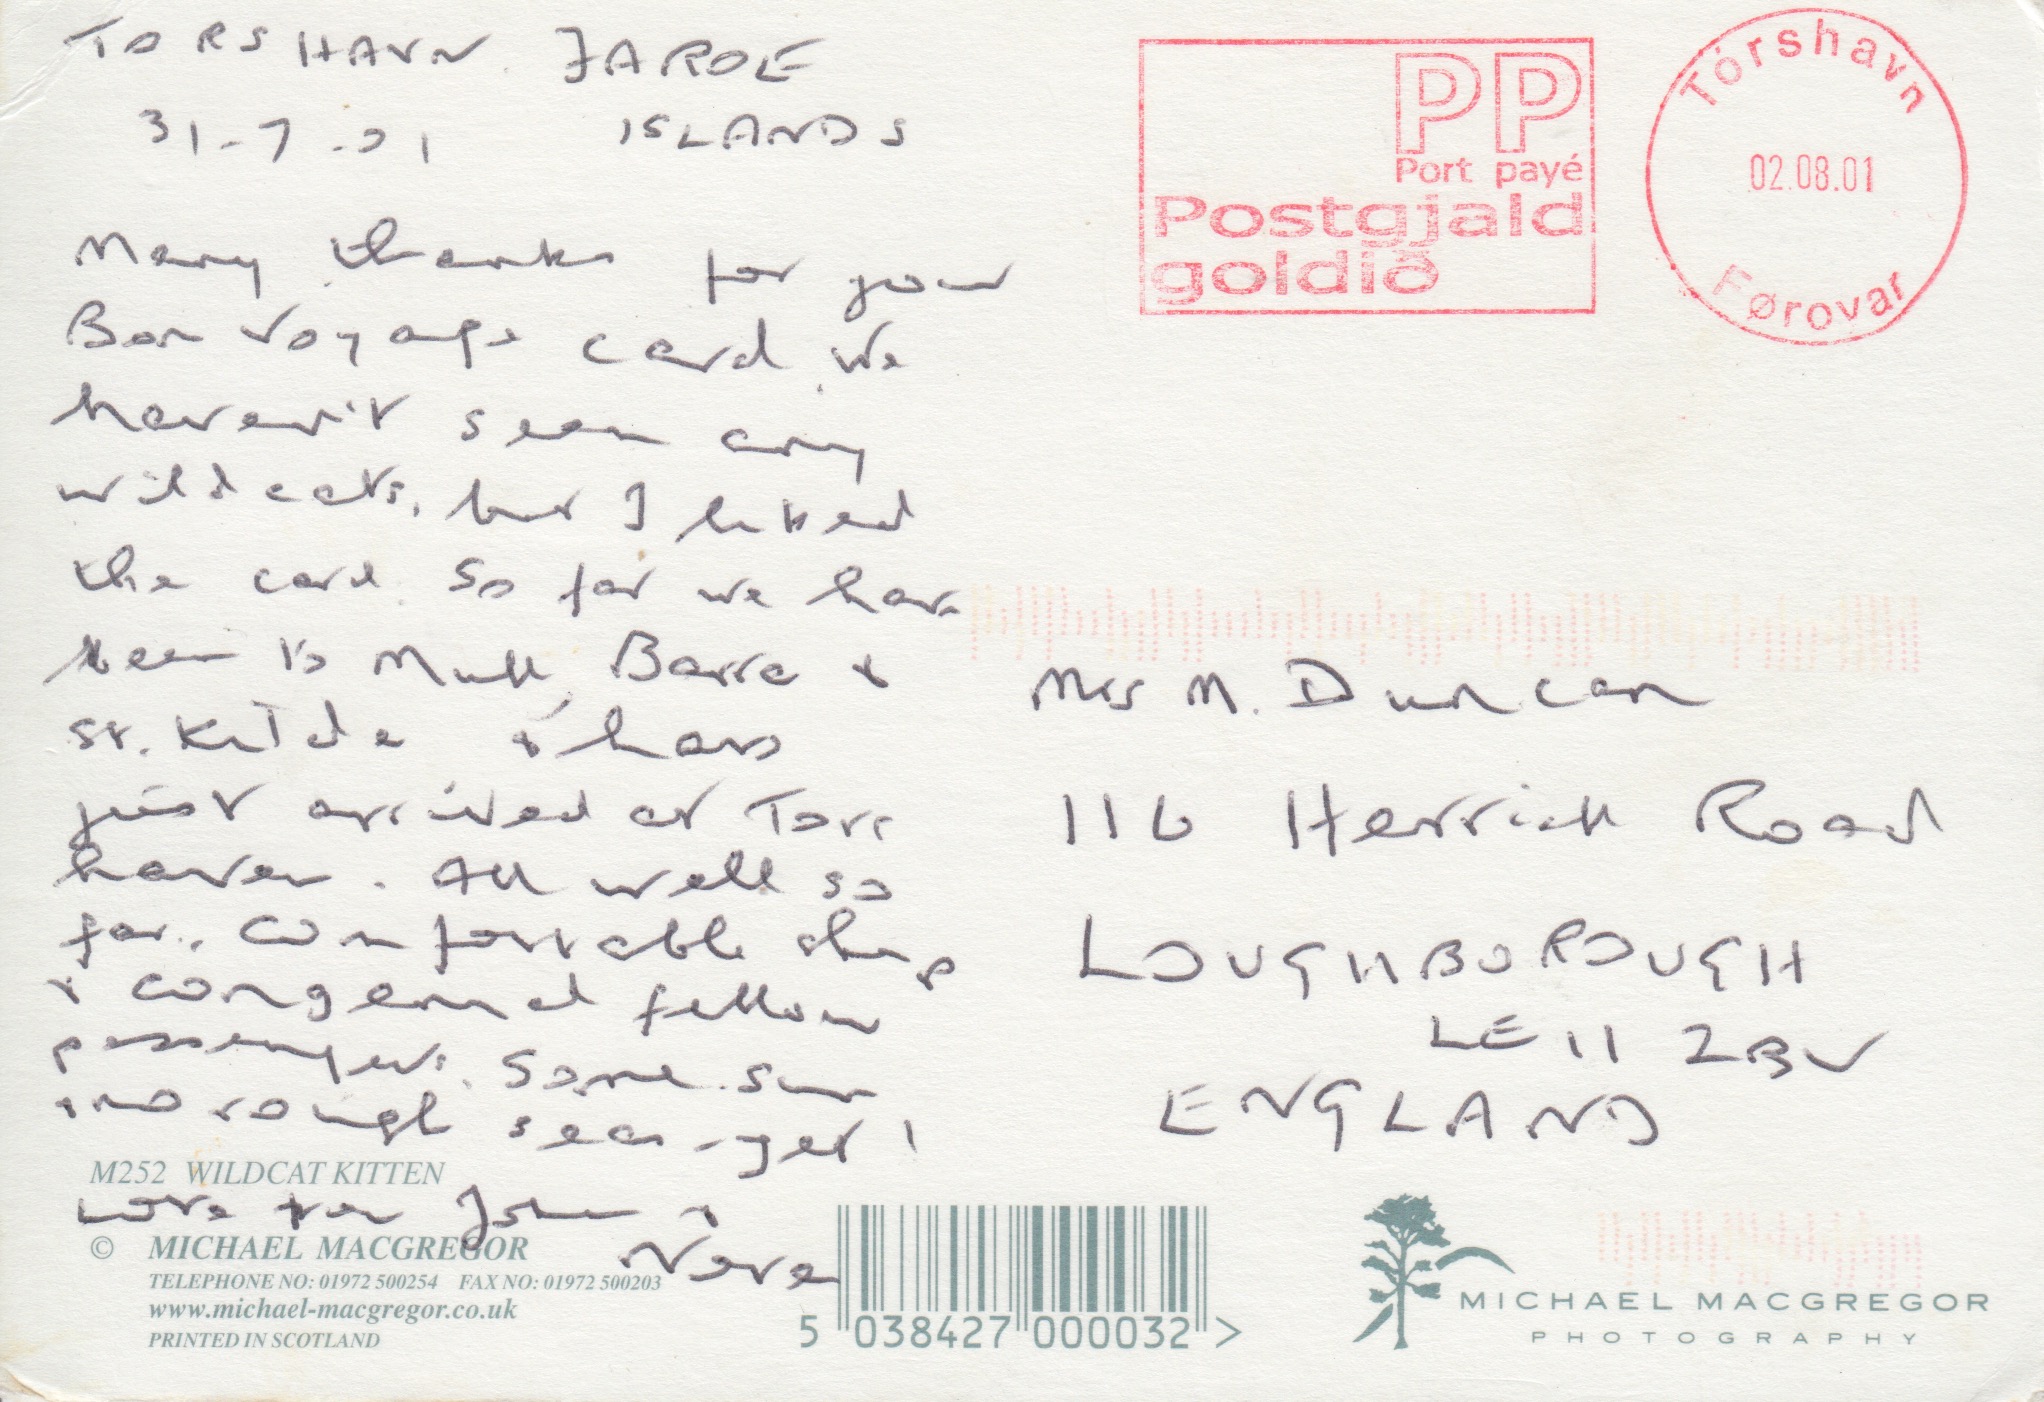 TORSHAVN. FAROE
31-7-01 ISLANDS
Many thanks for your
Bon Voyage card We
haven't seen any
wildcats, but I liked
the card. So far we have
been to Mull, Barra &
St. Kilda & have
just arrived at Tors
haven. All well so
far. Comfortable ship
& congenial fellow
passengers. Some sun
& no rough seas - yet!
Love from John &
PP
Port payé
Postgjald
goldið
Tórshavn
02.08.01
Føroyar
Mrs M. Duncan
116 Herrick Road
LOUGHBOROUGH
LE11 2BU
ENGLAND
M252 WILDCAT KITTEN
© MICHAEL MACGREGOR
TELEPHONE NO: 01972 500254 FAX NO: 01972 500203
www.michael-macgregor.co.uk
PRINTED IN SCOTLAND
5 038427 000032 >
MICHAEL MACGREGOR
PHOTOGRAPHY